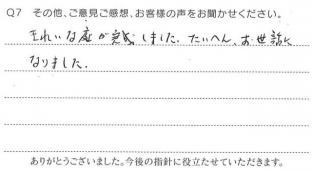 Q7 その他、ご意見ご感想、お客様の声をお聞かせください。
きれいな庭が完成しました。たいへん、お世話に
なりました。
ありがとうございました。今後の指針に役立たせていただきます。